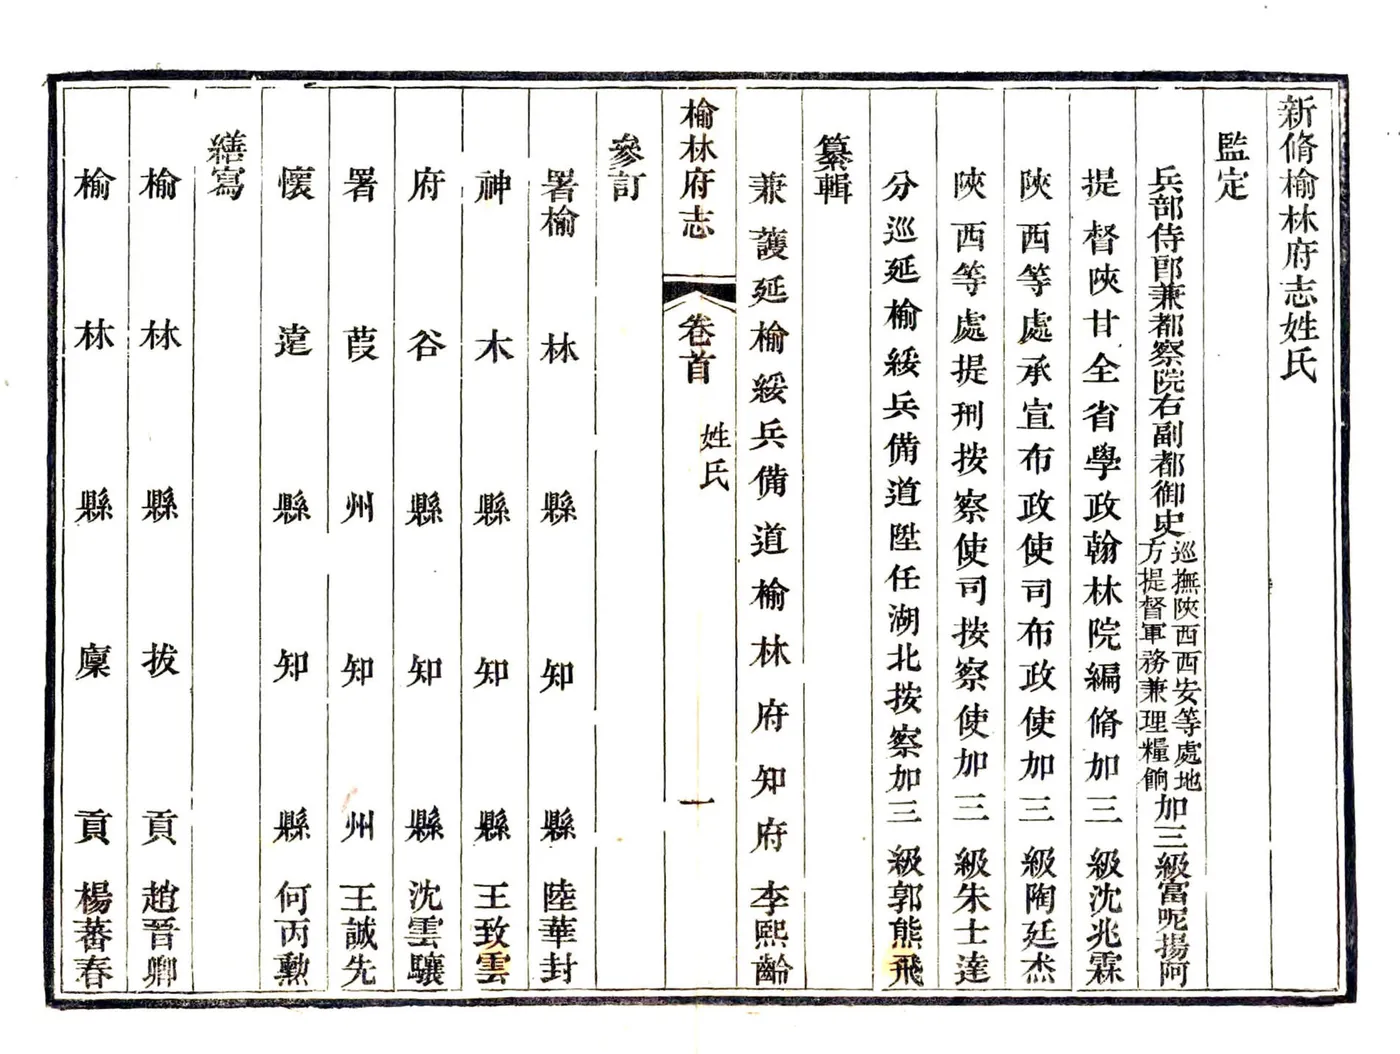 新脩榆林府志姓氏
監定
兵部侍郎兼都察院右副都御史巡撫陝西西安等處地方提督軍務兼理糧餉加三級富呢揚阿
提督陝甘全省學政翰林院編脩加三級沈兆霖
陝西等處承宣布政使司布政使加三級陶廷杰
陝西等處提刑按察使司按察使加三級朱士達
分巡延榆綏兵備道陞任湖北按察加三級郭熊飛
纂輯
兼護延榆綏兵備道榆林府知府李熙齡
榆林府志 卷首 姓氏 一
參訂
署榆林縣知縣陸華封
神木縣知縣王致雲
府谷縣知縣沈雲驤
署葭州知州王誠先
懷遠縣知縣何丙勲
繕寫
榆林縣拔貢趙晉卿
榆林縣廩貢楊蕃春